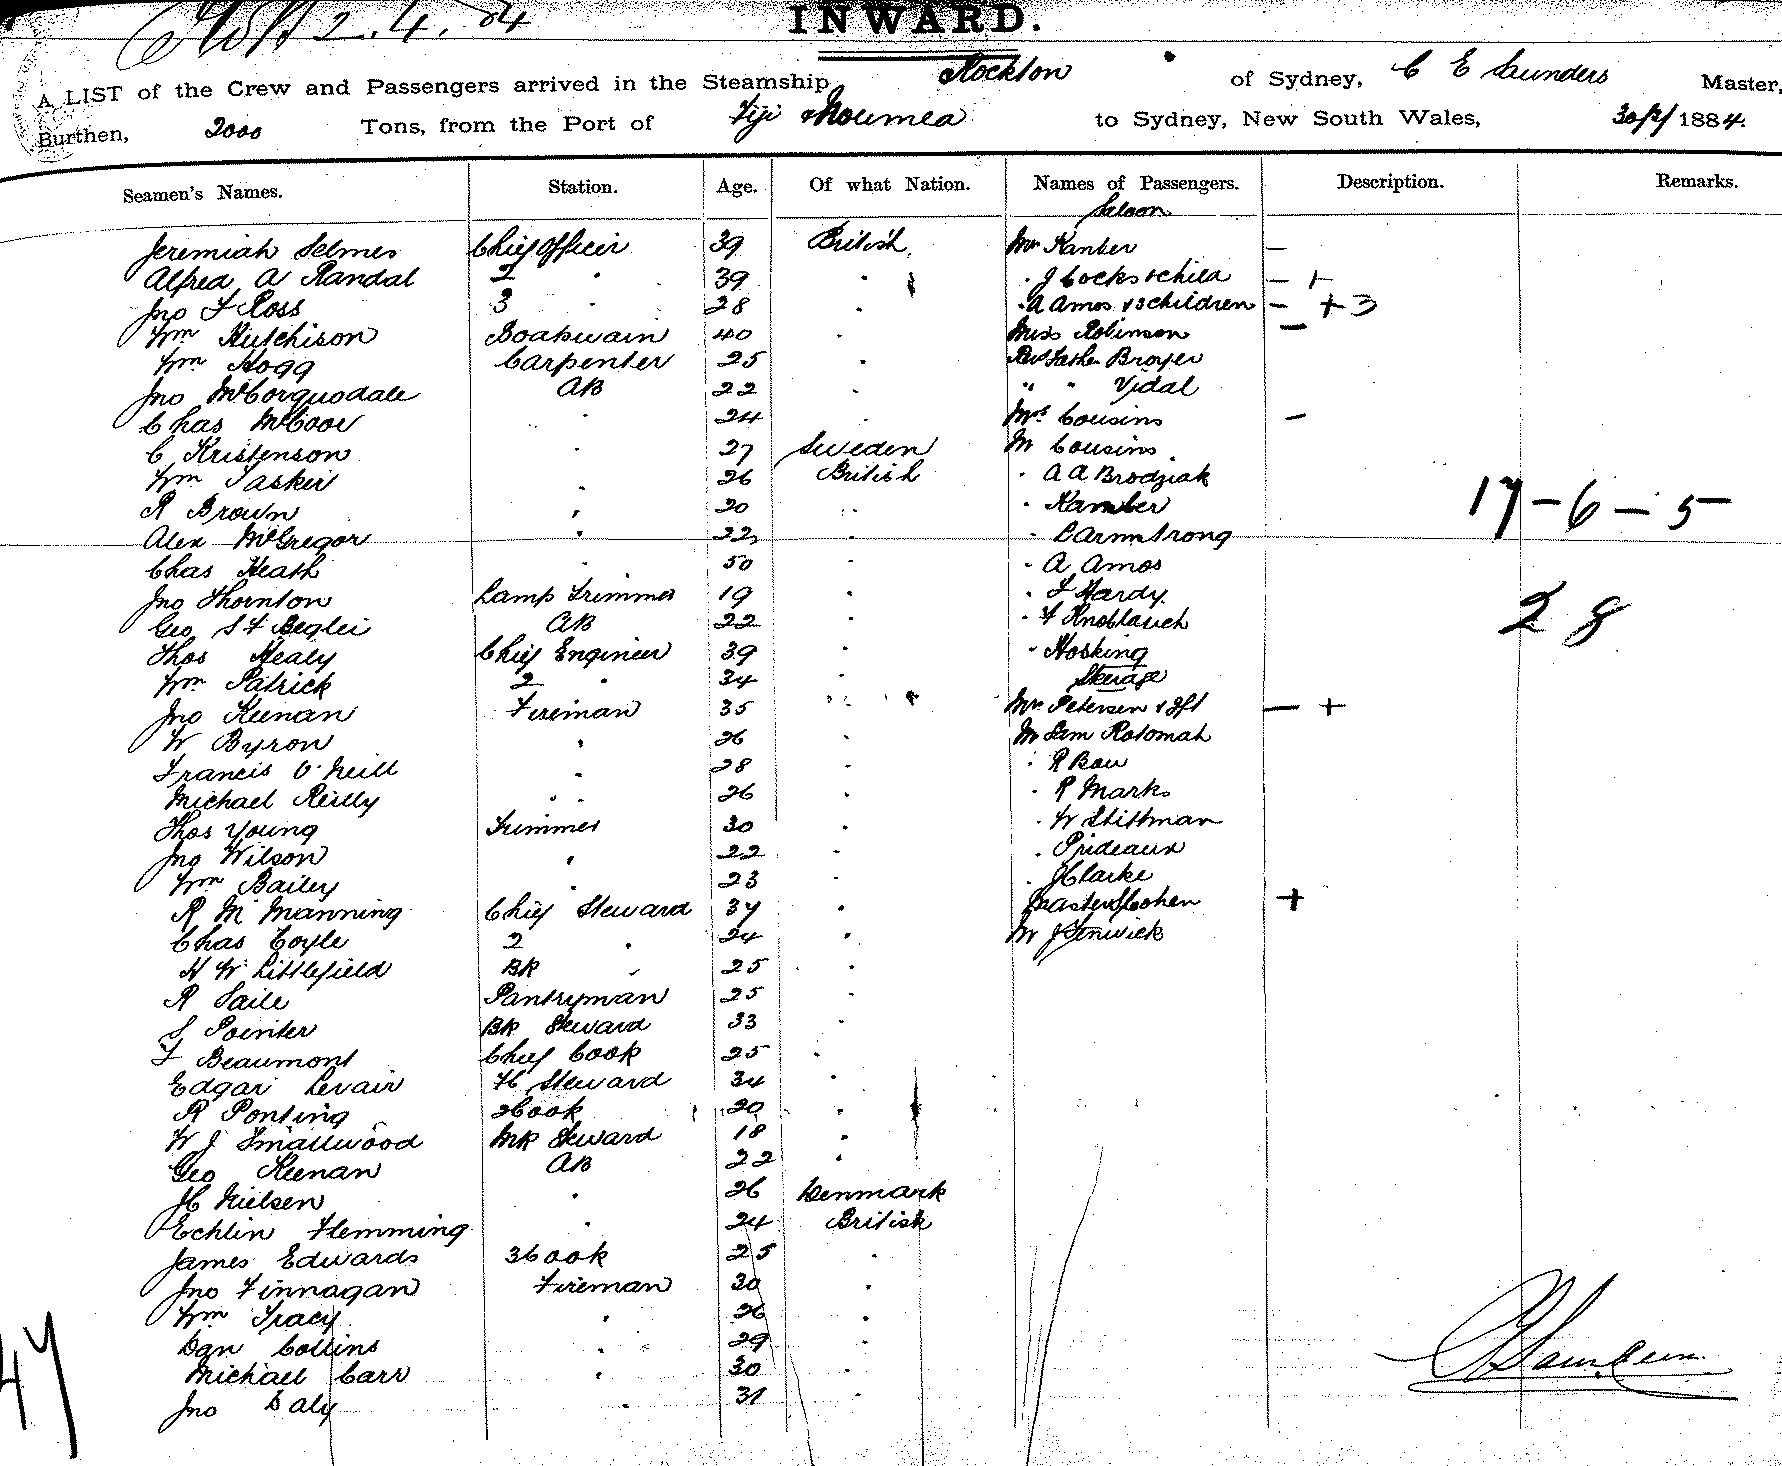 2.4.84
INWARD.
A LIST of the Crew and Passengers arrived in the Steamship Stockton of Sydney, C E Saunders Master,
Burthen, 2000 Tons, from the Port of Fiji & Noumea to Sydney, New South Wales, 1884.
Seamen's Names. Station. Age. Of what Nation. Names of Passengers. Description. Remarks.
Saloon
Jeremiah Selmes Chief Officer 39 British Mrs Kanber —
Alfred A Randal 2 " 39 " " J Cocks & child — +
Jno F Ross 3 " 28 " " A Amos & 3 children — + 3
Wm Hutchison Boatswain 40 " Miss Robinson —
Wm Hogg Carpenter 25 " Revd Father Broyer
Jno McCorquodale AB 22 " " " Vidal
Chas McCoor " 24 " Mrs Cousins —
C Kristenson " 27 Sweden Mr Cousins
Wm Tasker " 26 British " A A Brodziak
R Brown " 20 " " Kamber 17 - 6 - 5 -
Alex McGregor " 22 " " C Armstrong
Chas Heath " 50 " " A Amos
Jno Thornton Lamp Trimmer 19 " " F Hardy 28
Geo St F Beglei AB 22 " " F Knoblauch
Thos Healy Chief Engineer 39 " " Hosking
Steerage
Wm Patrick 2 " 34 "
Jno Keenan Fireman 35 " Mrs Petersen & Inft — +
W Byron " 26 " Mr Sam Rotomah
Francis O'Neill " 28 " " R Bau
Michael Reilly " 26 " " R Marks
Thos Young Trimmer 30 " " W Stittman
Jno Wilson " 22 " " Prideaux
Wm Bailey " 23 " " J Clarke
R M Manning Chief Steward 37 " Master Cohen +
Chas Coyle 2 " 24 " Mr J Fenwick
H W Littlefield BR " 25 "
R Saile Pantryman 25 "
S Pointer BR Steward 33 "
F Beaumont Chief Cook 25 "
Edgar Levair FC Steward 34 "
R Ponting 2 Cook 20 "
W J Smallwood MR Steward 18 "
Geo Keenan AB 22 "
J C Nielsen " 26 Denmark
Echlin Flemming " 24 British
James Edwards 3 Cook 25 "
Jno Finnagan Fireman 30 "
Wm Tracy " 26 "
Dan Collins " 29 "
Michael Carr " 30 "
Jno Daly " 31 "
47